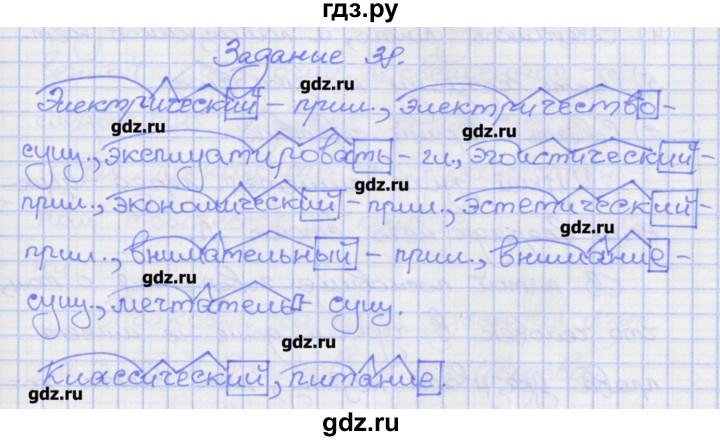 гдз.ру
Задание 38.
gdz.ru
Электрический - прил., электричество -
gdz.ru gdz.ru
сущ., эксплуатировать - гл., эгоистический -
gdz.ru
прил., экономический - прил., эстетический -
gdz.ru
прил., внимательный - прил., внимание -
gdz.ru
сущ., мечтатель - сущ.
gdz.ru
Классический, питание.
gdz.ru
gdz.ru